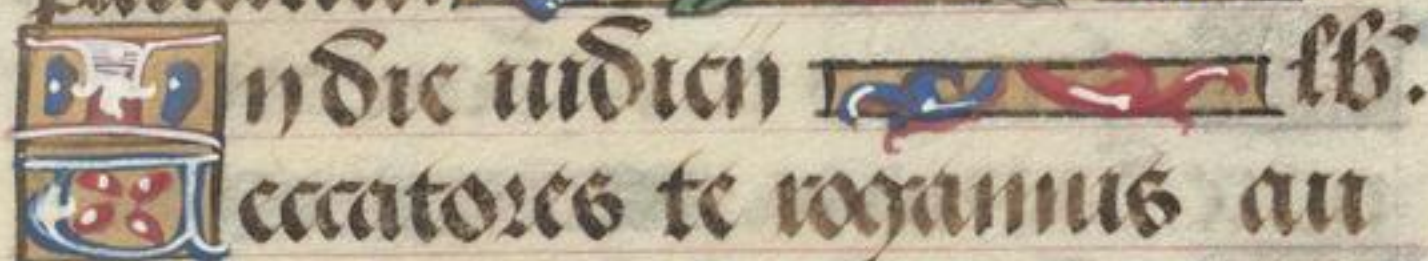 In die iudicij lb.
Peccatores te rogamus au